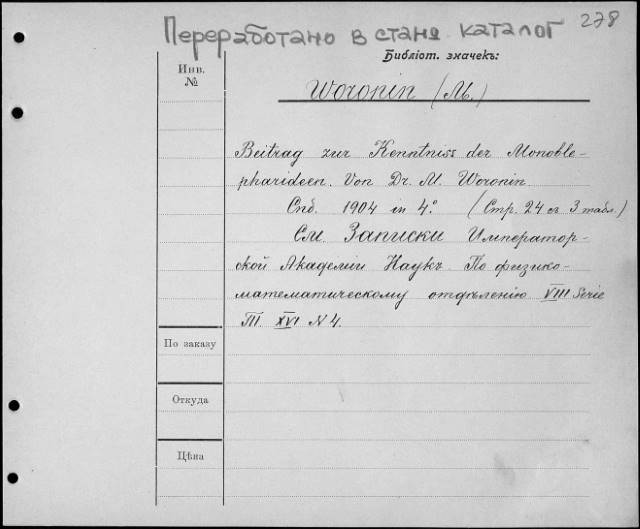 Переработано в стан. каталог 278
Библіот. значекъ:
Инв.
№
Woronin (M.)
Beitrag zur Kenntniss der Monoble-
pharideen. Von Dr. M. Woronin.
Спб. 1904 in 4.° (Стр. 24 съ 3 табл.)
См. Записки Император-
ской Академіи Наукъ. По физико-
математическому отдѣленію VIII Serie
Т. XVI N 4.
По заказу
Откуда
Цѣна